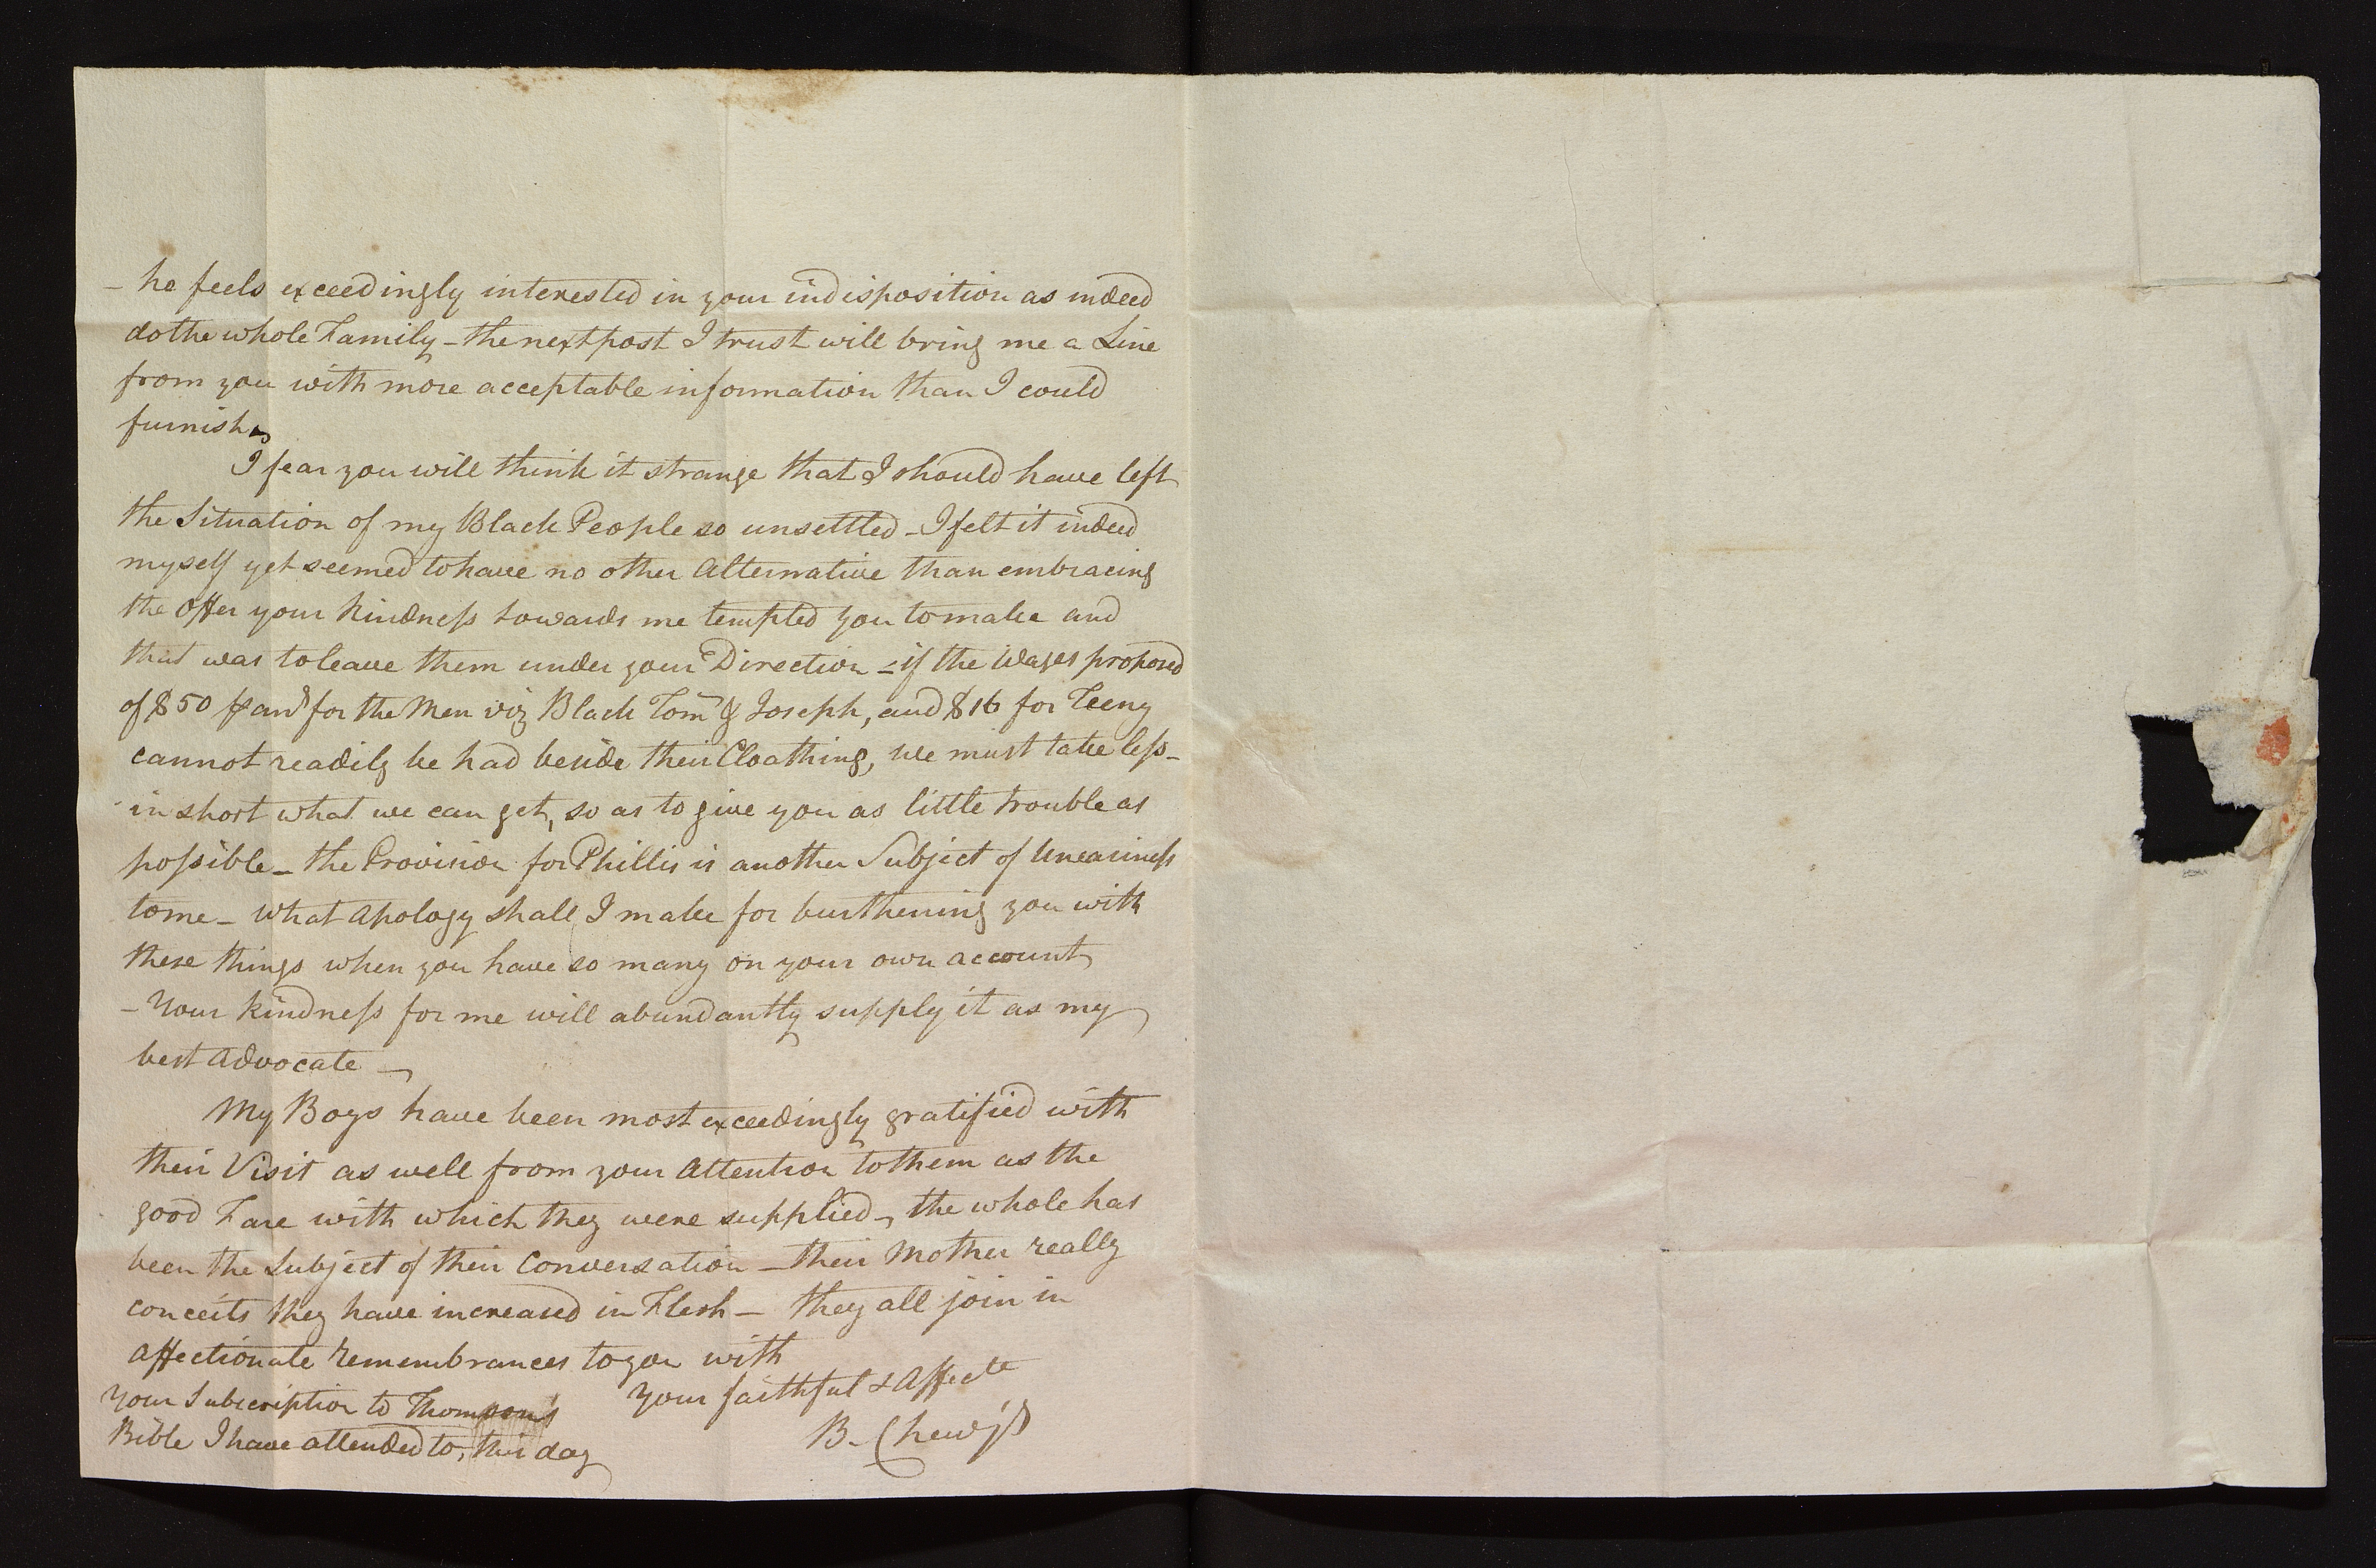 - he feels exceedingly interested in your indisposition as indeed
do the whole Family - the next post I trust will bring me a Line
from you with more acceptable information than I could
furnish
I fear you will think it strange that I should have left
the Situation of my Black People so unsettled - I felt it indeed
myself yet seemed to have no other Alternative than embracing
the Offer your Kindness towards me tempted you to make and
that was to leave them under your Direction - if the Wages proposed
of $50 for the Men viz Black Tom & Joseph, and $16 for Teeny
cannot readily be had beside their Cloathing, we must take less -
in short what we can get, so as to give you as little trouble as
possible - the Provision for Phillis is another Subject of Uneasiness
to me - what Apology shall I make for burthening you with
these things when you have so many on your own account
- Your kindness for me will abundantly supply it as my
best Advocate -
My Boys have been most exceedingly gratified with
their Visit as well from your Attention to them as the
good Fare with which they were supplied, the whole has
been the Subject of their Conversation - their Mother really
conceits they have increased in Flesh - they all join in
Affectionate Remembrances to you with
Your faithful & Affecte
B. Chew jr
Your Subscription to Thompson's
Bible I have attended to, this day